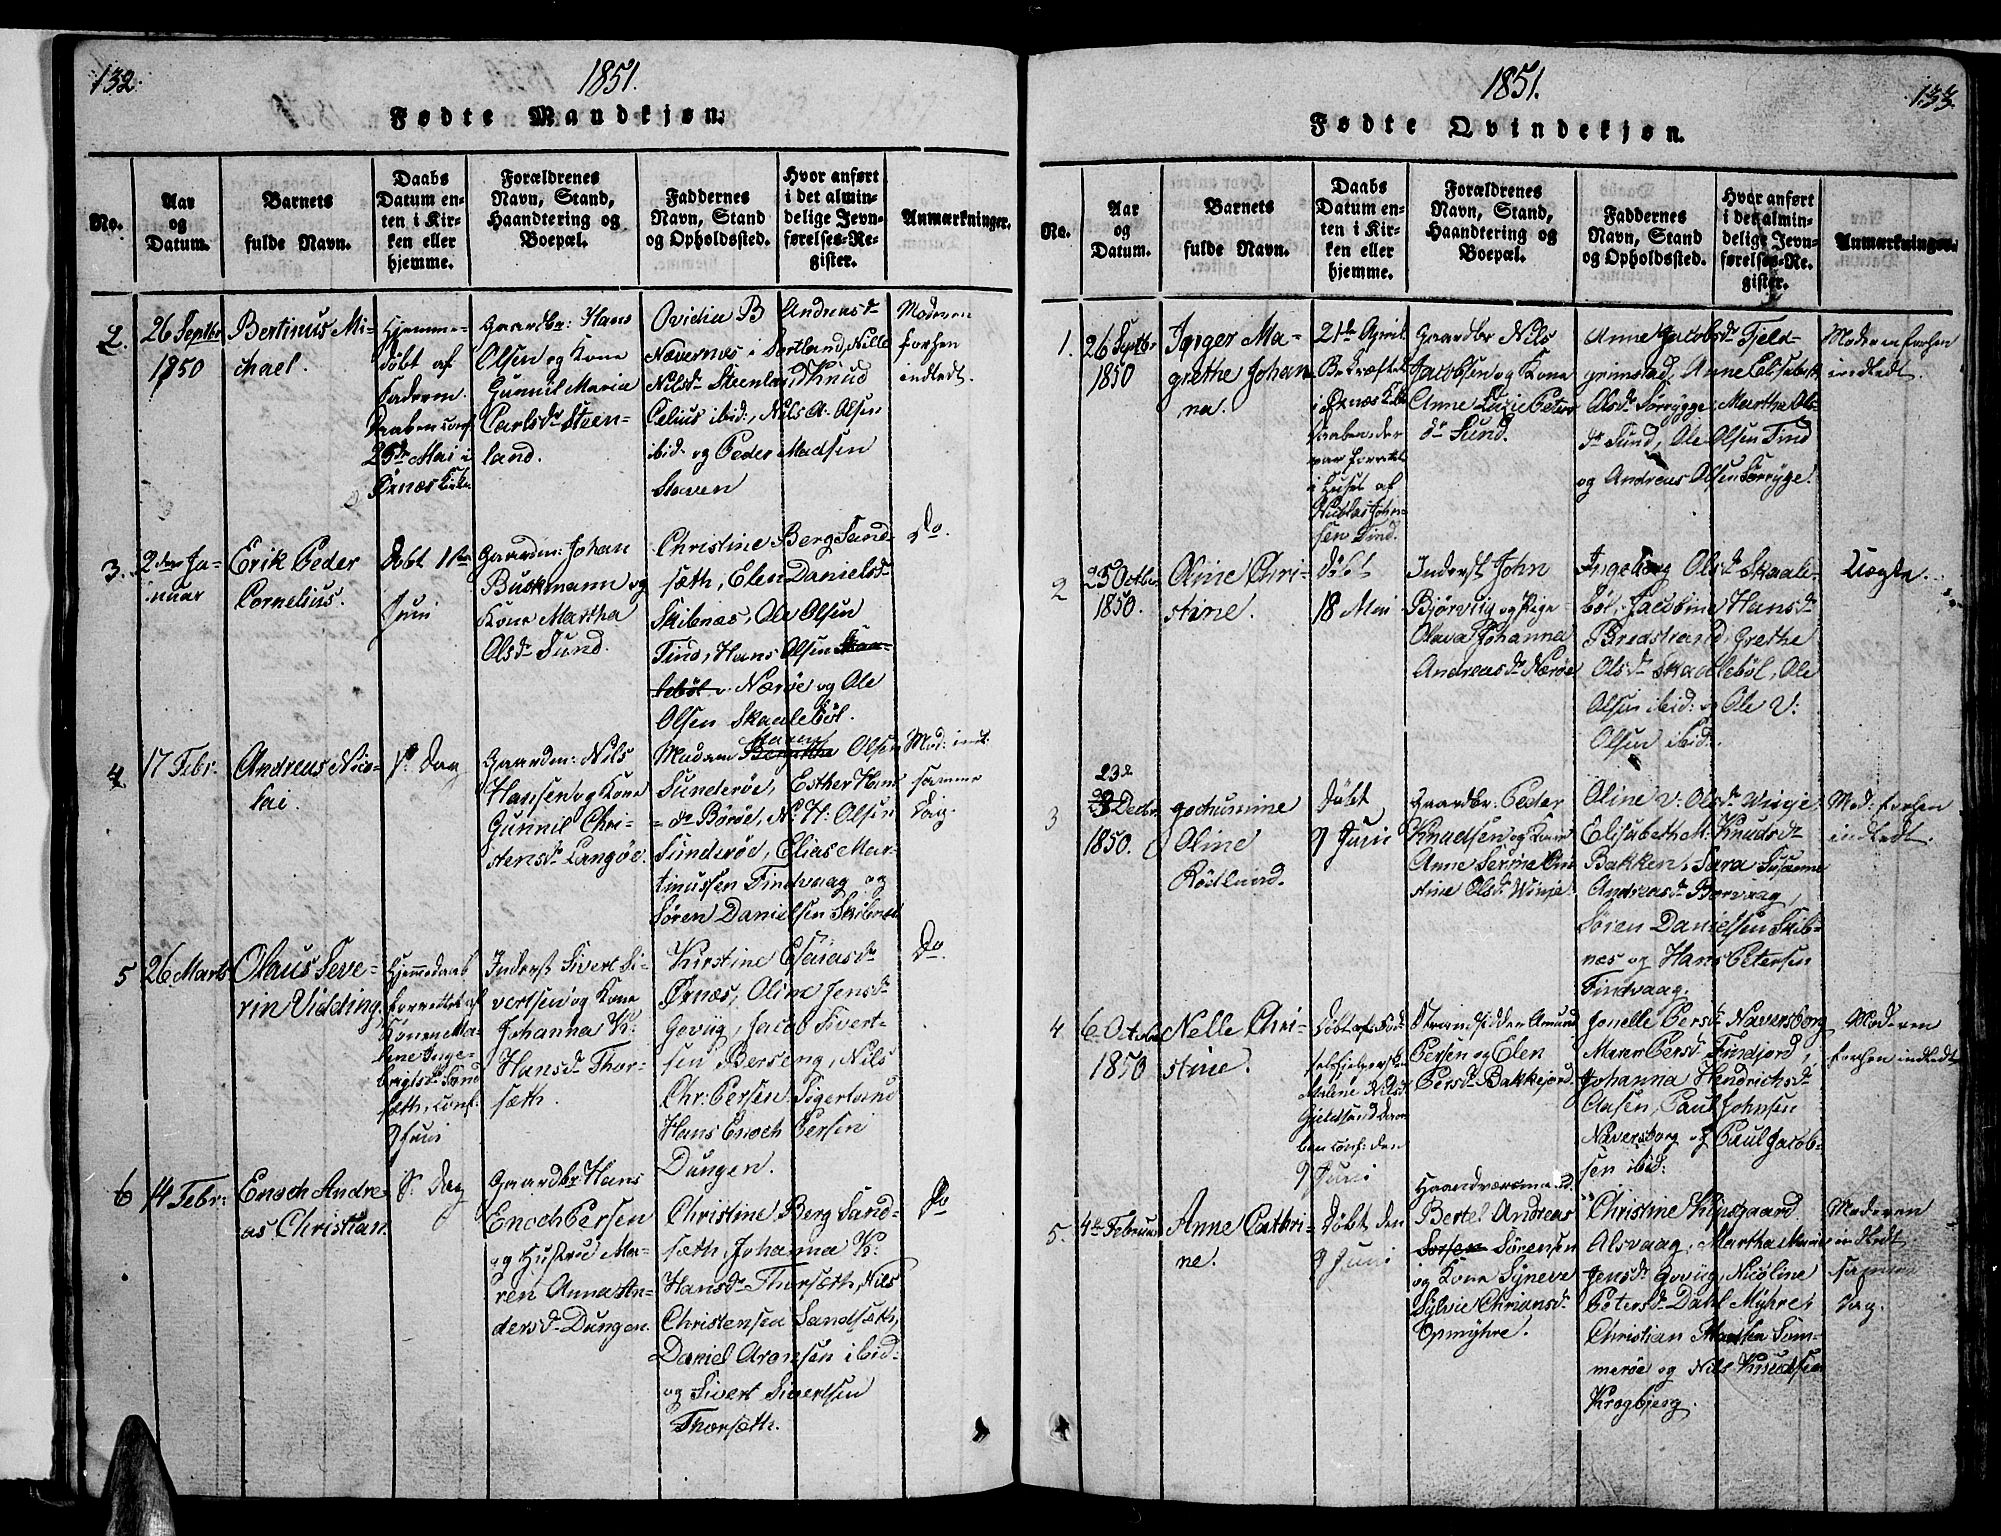 132.
1851.
Fødte Mandkjøn.
No.
Aar
og
Datum.
Barnets
fulde Navn.
Daabs
Datum en-
ten i Kir-
ken eller
hjemme.
Forældrenes
Navn, Stand,
Haandtering og
Boepæl.
Faddernes
Navn, Stand
og Opholdssted.
Hvor anført
i det almin-
delige Jevn-
førelses-Re-
gister.
Anmærkninger.
2.
26 Septbr
1850
Bertinus Mi-
chael.
Hjemme-
døbt af
Faderen.
Daaben conf.
25de Mai i
Ørnæs Kirke
Gaardbr: Hans
Olsen og Kone
Gunnil Maria
Carlsdr Steen-
land.
Ovidia B Andreasdr
Nævernæs i Sortland, Nille
Nilsdr Steenland Knud
Celius ibid:, Nils A. Olsen
ibid: og Peder Madsen
Staven
Moderen
forhen
indledt.
3.
2den Ja-
nuar
Erik Peder
Cornelius.
Døbt 1ste
Juni
Gaardm: Johan
Buckmann og
Kone Martha
Olsdr Sund.
Christine Berg Sand-
sæth, Elen Danielsdr
Skibnæs, Ole Olsen
Tind, Hans Olsen Skaa-
lebøl Nærøe og Ole
Olsen Skaalebøl.
Do.
4
17 Febr.
Andreas Nico-
lai.
S. Dag
Gaardm: Nils
Hansen og Kone
Gunnil Chri-
stensdr Langøe.
Maren
Madam Beritha Olsen
Sunderøe, Esther Hans
dr Børøe, N. H: Olsen
Sunderøe, Elias Mar-
tinussen Findvaag og
Søren Danielsen Skibnæs
Mod: indl:
samme
Dag.
5
26 Marts
Olaus Seve-
rin Vidding.
Hjemmedaab
forrettet af
Konen Ma-
line Inge-
brigtsdr Sand
sæth, conf.
9 Juni
Inderst Sivert Si-
vertsen og Kone
Johanna K:
Hansdr Thor-
sæth.
Kirstine Esaiasdr
Ørnæs, Olina Jensdr
Goviig, Jacob Sivert-
sen Berseng, Nils
Chr: Persen Sigerland
Hans Enoch Persen
Dungen.
Do.
6
14 Febr:
Enoch Andre
as Christian.
S. Dag
Gaardbr Hans
Enoch Persen
og Hustrue Ma-
ren Anna An-
dersdr Dungen.
Christine Berg Sand-
sæth, Johanna K:
Hansdr Thorsæth, Nils
Christensen Sandsæth,
Daniel Aronsen ibid:
og Sivert Sivertsen
Thorsæth.
Do
1851.
133.
Fødte Qvindekjøn.
No.
Aar
og
Datum.
Barnets
fulde Navn.
Daabs
Datum en-
ten i Kir-
ken eller
hjemme.
Forældrenes
Navn, Stand,
Haandtering og
Boepæl.
Faddernes
Navn, Stand
og Opholdssted.
Hvor anført
i det almin-
delige Jevn-
førelses-Re-
gister.
Anmærkninger.
1.
26 Septbr
1850
Inger Ma-
grethe Johan-
na.
21de April
Bekræftet
i Øknæs Kirke
Daaben, der
var forrettet
i Huset af
Nicolas John-
sen Tind.
Gaardbr Nils
Jacobsen og Kone
Anne Luzie Peters
dr Sund.
Anne Jacobsdr Fjeld-
grimstad, Anne Elisabeth
Olsdr Sørrygge, Martha Ols-
dr Sund, Ole Olsen Tind
og Andreas Olsen Sørryge.
Moderen forhen
indledt.
2
25 Octbr
1850.
Oline Chri-
stine.
Døbt
18 Mai
Inderst John
Bjørvtig og Pige
Olava Johanna
Andreasdr Nærøe
Ingeborg Olsdr Skaale-
bøl, Jacobine Hansdr
Bredstrand, Grethe
Olsdr Skaalebøl, Ole
Olsen ibid: og Ole V:
Olsen ibid:.
Uægte.
3
23d
3 Decbr
1850.
Oline
Rødlund.
Døbt
9 Juni
Gaardbr: Peder
Knudsen og Kone
Anne Serine Chri
stine Olsdr Winje
Oline V: Olsdr Vinje
Elisabeth M: Knudsdr
Bakken, Sara Susanne
Andreasdr Børvaag,
Søren Danielssen Skib-
næs og Hans Petersen
Findvaag.
Mod: forhen
indledt.
4
6 Octobr
1850
Nelle Chri-
stine.
Døbt af Fød-
selshjelperske
Malene Nilsdr
Gjeldsand Daa-
ben conf: den
9 Juni
Strandsidder Amund
Persen og Elen
Persdr Bakkejord.
Jonelle Persdr Naversborg
Maren Persdr Finfjord,
Johanna Hendrichsdr
Aasen, Paul Johnsen
Naversborg og Paul Jacob-
sen ibid:
Moderen
forhen indledt
5.
4de Februar
Anne Cathri-
ne.
Døbt den
9 Juni
Haandværksmand
Bertel Andreas
Sorsen Sørensen
og Kone Synneve
Sylvie Chriansdr
Opmyhre.
Christine Klinsgaard
Alsvaag, Martha Marie
Jensdr Goviig, Nicoline
Petersdr Dahl Myhre,
Christian Madsen Som-
merøe og Nils Knudsen
Krogbjerg.
Moderen
indledt
samme
Dag.